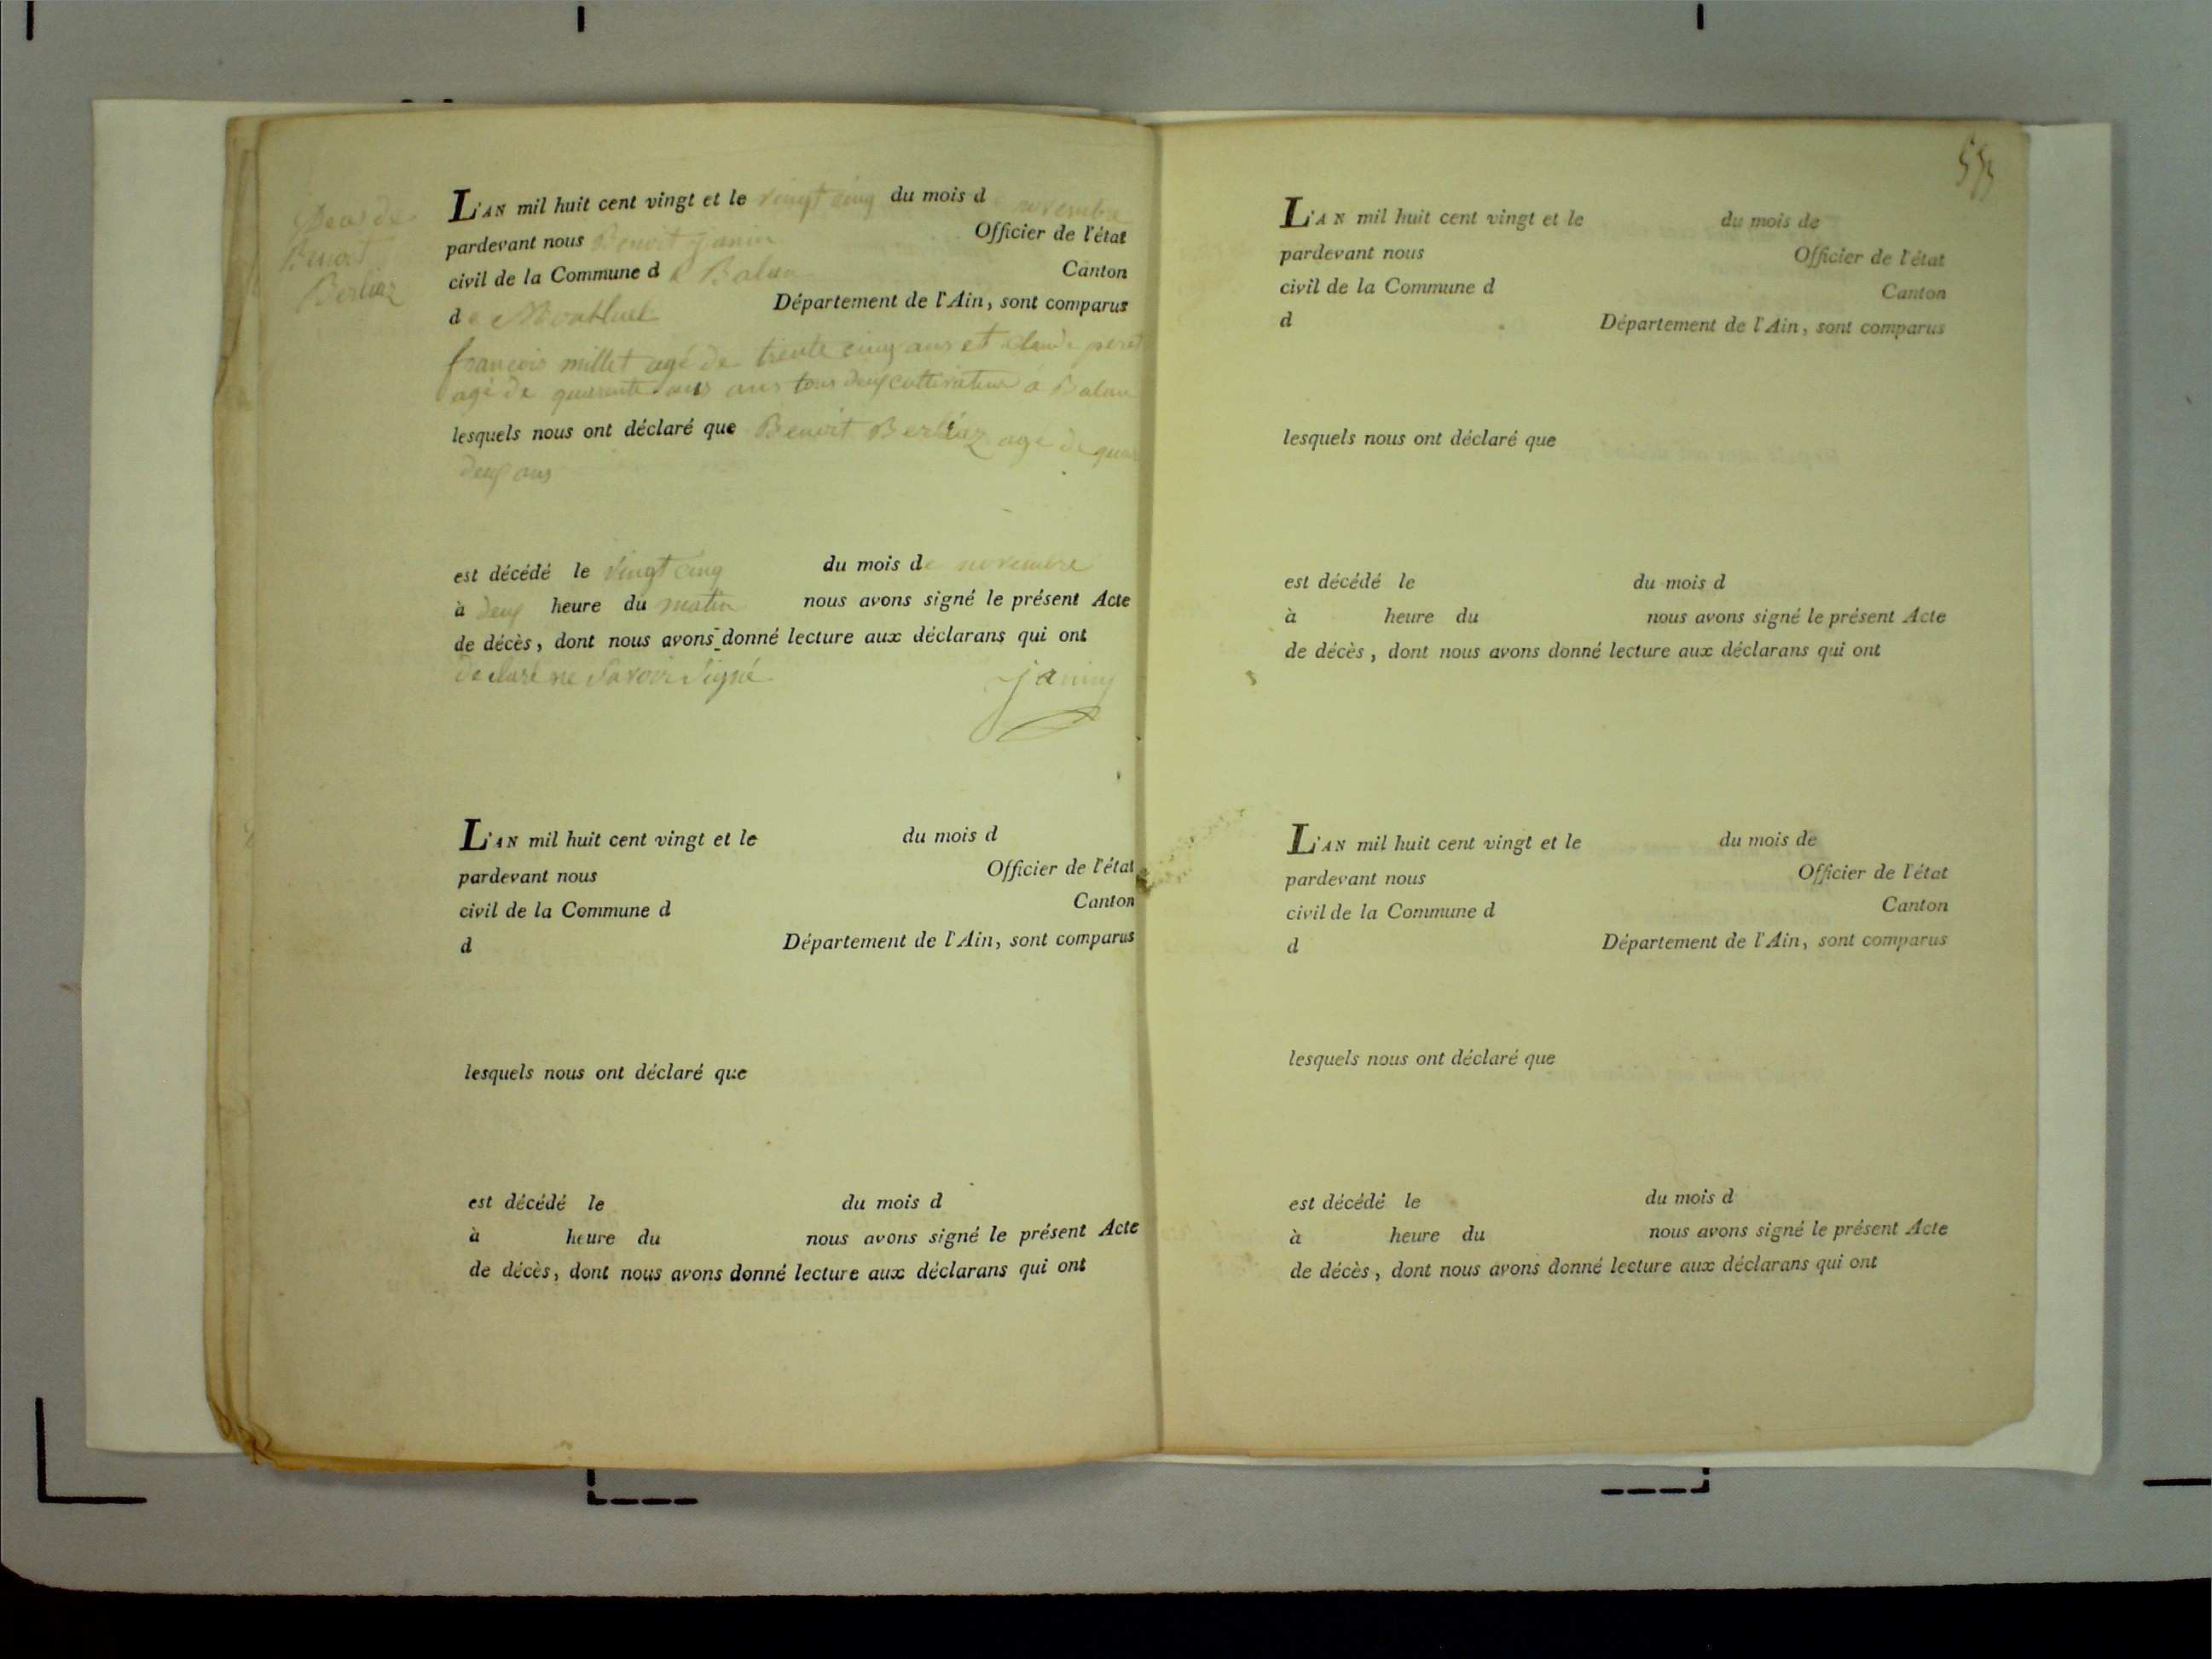 Deces de
Benoit
Berliaz
L'AN mil huit cent vingt et le vingt cinq du mois de novembre
pardevant nous Benoit janin Officier de l'état
civil de la Commune de Balan Canton
de Montluel Département de l'Ain, sont comparus
françois millet agé de trente cinq ans et claude peret
agé de quarente ans tous deux cultivateur a Balan
lesquels nous ont déclaré que Benoit Berliaz agé de
deux ans
est décédé le vingt cinq du mois de novembre
à deux heure du matin nous avons signé le présent Acte
de décès, dont nous avons donné lecture aux déclarans qui ont
declaré ne savoir signé
janin
L'AN mil huit cent vingt et le du mois d
pardevant nous Officier de l'état
civil de la Commune d Canton
d Département de l'Ain, sont comparus
lesquels nous ont déclaré que
est décédé le du mois d
à heure du nous avons signé le présent Acte
de décès, dont nous avons donné lecture aux déclarans qui ont
L'AN mil huit cent vingt et le du mois de
pardevant nous Officier de l'état
civil de la Commune d Canton
d Département de l'Ain, sont comparus
lesquels nous ont déclaré que
est décédé le du mois d
à heure du nous avons signé le présent Acte
de décès, dont nous avons donné lecture aux déclarans qui ont
L'AN mil huit cent vingt et le du mois de
pardevant nous Officier de l'état
civil de la Commune d Canton
d Département de l'Ain, sont comparus
lesquels nous ont déclaré que
est décédé le du mois d
à heure du nous avons signé le présent Acte
de décès, dont nous avons donné lecture aux déclarans qui ont